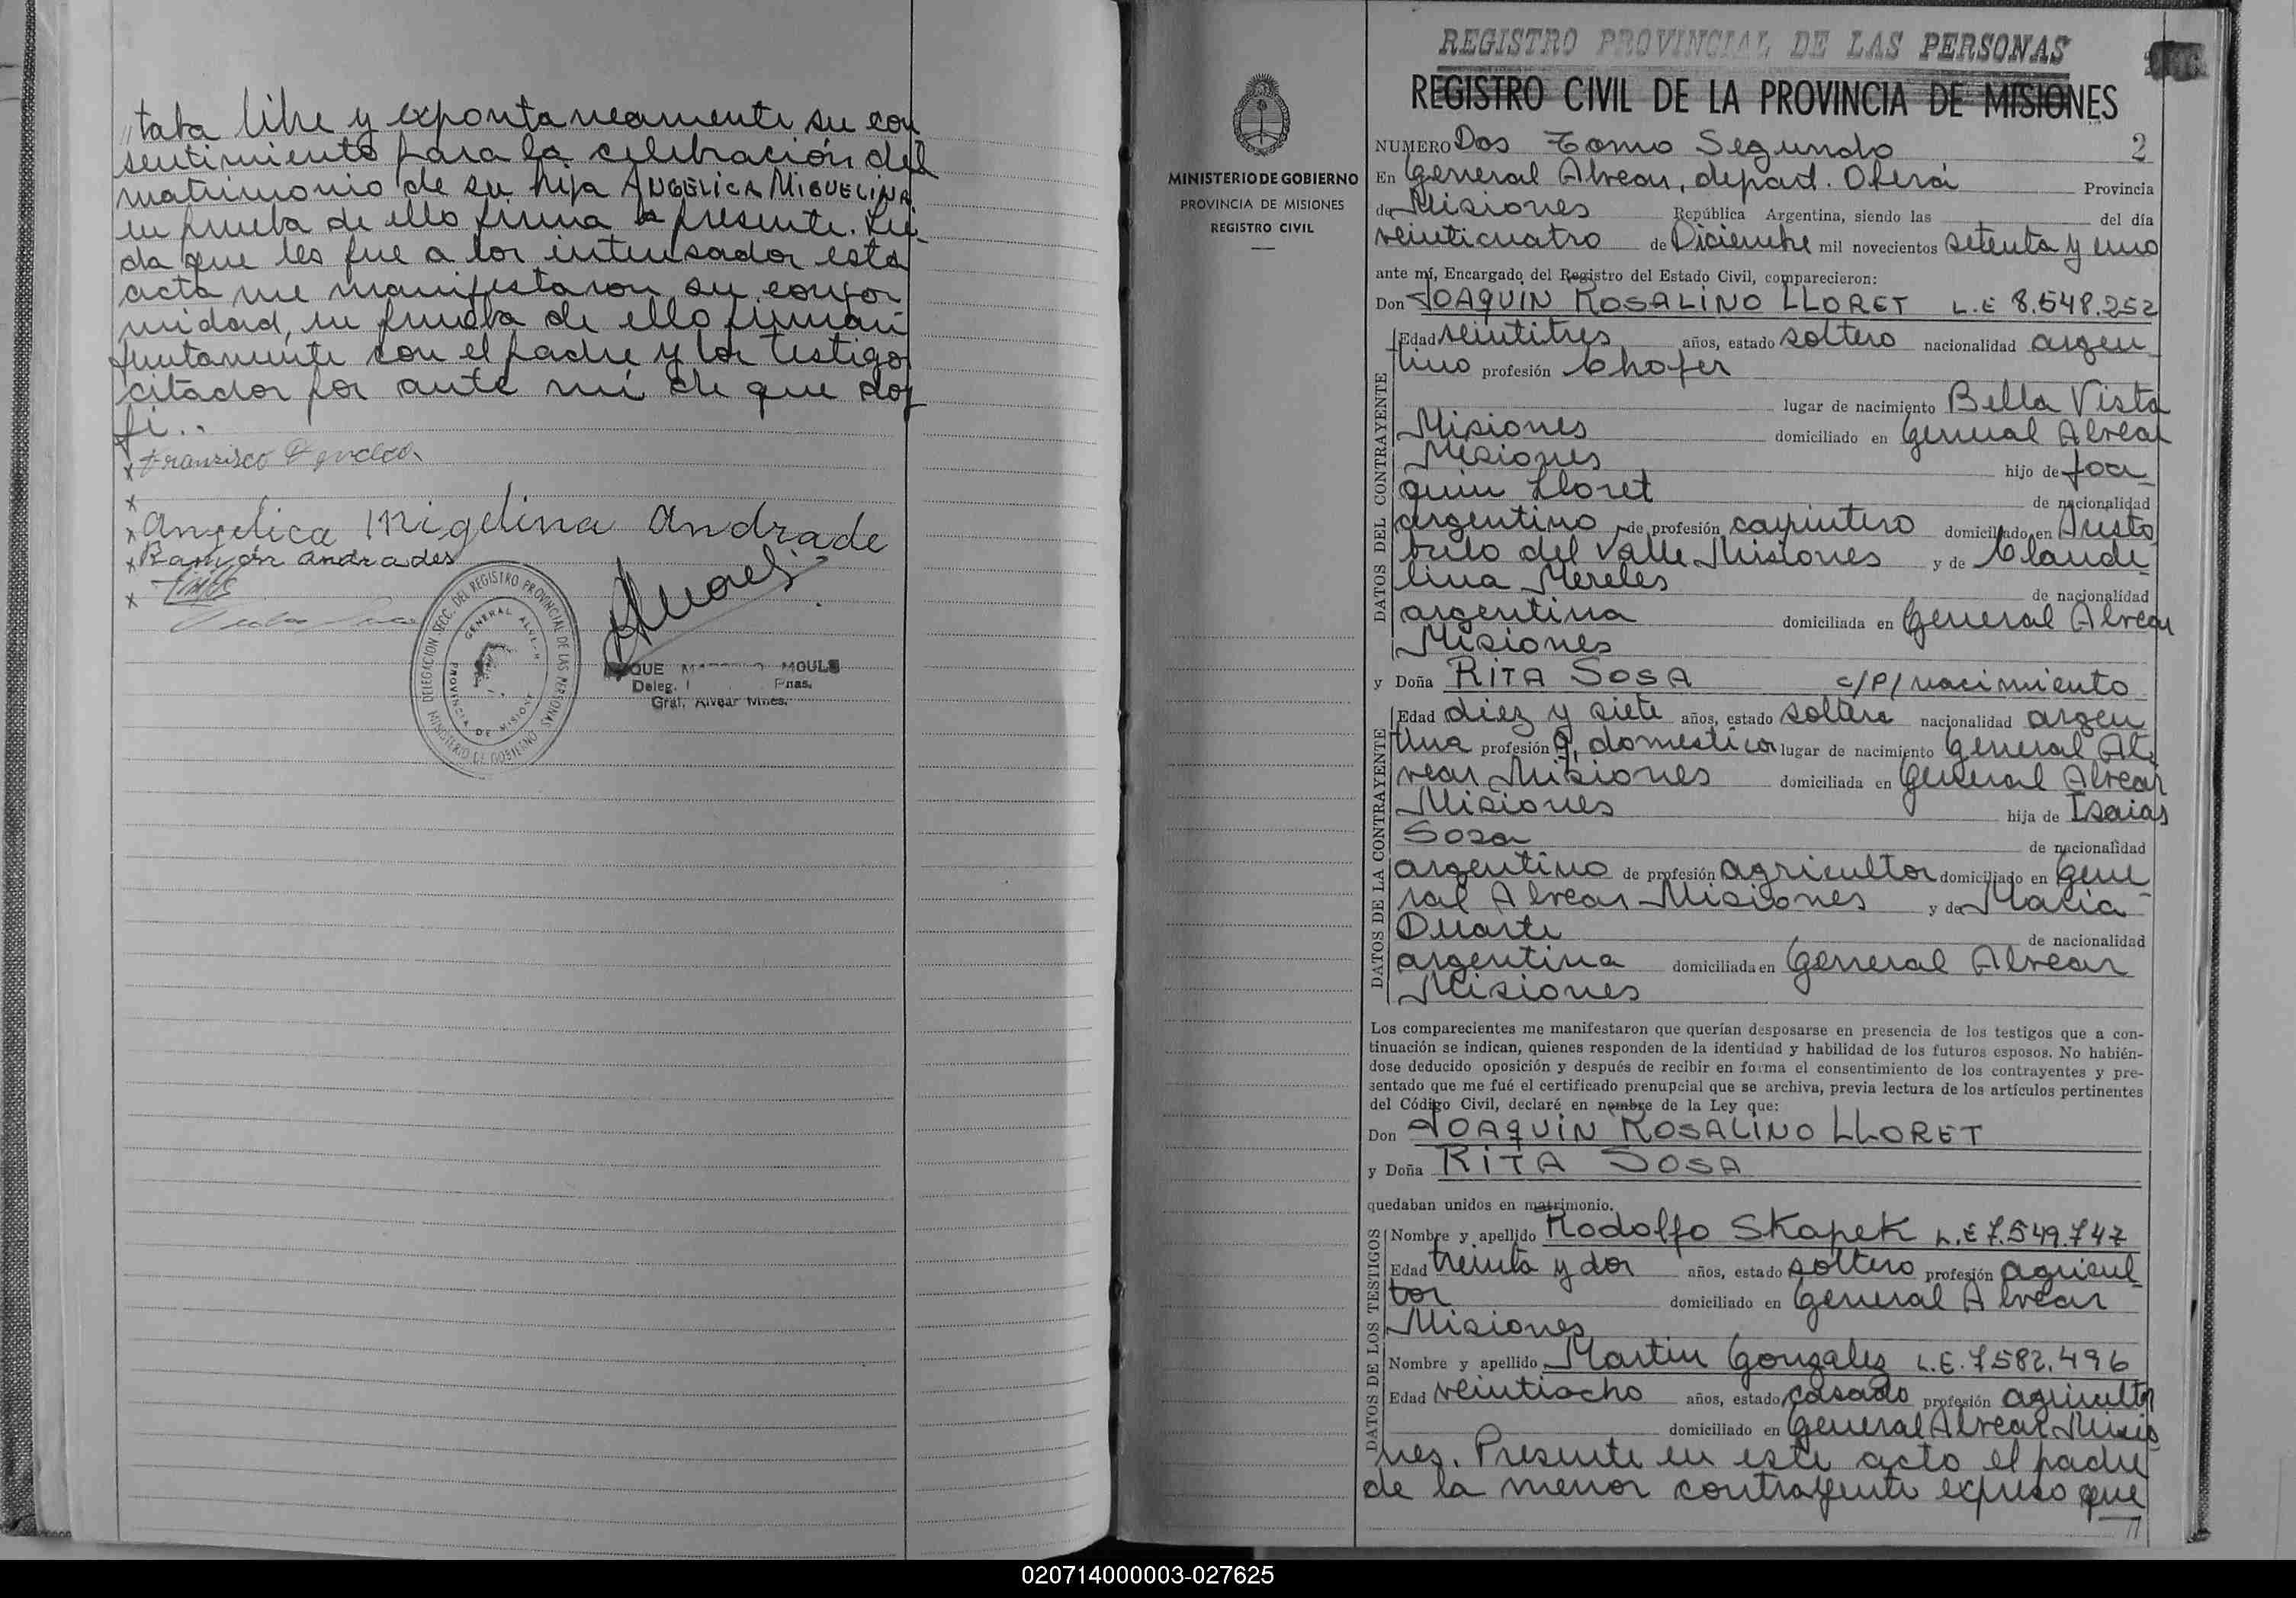 "taba libre y expontaneamente su con
sentimiento para la celebración del
matrimonio de su hija ANGELICA MIGUELINA
en prueba de ello firma la presente. Leí-
da que les fue a los interesados esta
acta me manifestaron su confor
midad, en prueba de ello firman
juntamente con el padre y los testigos
citados por ante mí de que doy
fé..
x Francisco
x
x Angelica Migelina Andrade
x Ramón Andrades
x
DELEGACION SECC. DEL REGISTRO PROVINCIAL DE LAS PERSONAS
MINISTERIO DE GOBIERNO
GENERAL ALVEAR
PROVINCIA DE MISIONES
QUE MOULS
Deleg. Pnas.
Gral. Alvear Mnes.
REGISTRO PROVINCIAL DE LAS PERSONAS
REGISTRO CIVIL DE LA PROVINCIA DE MISIONES
MINISTERIO DE GOBIERNO
PROVINCIA DE MISIONES
REGISTRO CIVIL
NUMERO Dos Tomo Segundo 2
En General Alvear, depart. Oberá Provincia
de Misiones República Argentina, siendo las del día
veinticuatro de Diciembre mil novecientos setenta y uno
ante mí, Encargado del Registro del Estado Civil, comparecieron:
Don JOAQUIN ROSALINO LLORET L.E 8.548.252
DATOS DEL CONTRAYENTE
Edad veintitres años, estado soltero nacionalidad argen
tino profesión Chofer
lugar de nacimiento Bella Vista
Misiones domiciliado en General Alvear
Misiones hijo de Joa
quin Lloret de nacionalidad
argentino de profesión carpintero domiciliado en Aristo
bulo del Valle Misiones y de Claude
lina Mereles de nacionalidad
argentina domiciliada en General Alvear
Misiones
y Doña RITA SOSA c/P/nacimiento
DATOS DE LA CONTRAYENTE
Edad diez y siete años, estado soltera nacionalidad argen
tina profesión q. domesticos lugar de nacimiento General Al
vear Misiones domiciliada en General Alvear
Misiones hija de Isaias
Sosa de nacionalidad
argentino de profesión agricultor domiciliado en Gene
ral Alvear Misiones y de Maria
Duarte de nacionalidad
argentina domiciliada en General Alvear
Misiones
Los comparecientes me manifestaron que querían desposarse en presencia de los testigos que a con-
tinuación se indican, quienes responden de la identidad y habilidad de los futuros esposos. No habién-
dose deducido oposición y después de recibir en forma el consentimiento de los contrayentes y pre-
sentado que me fué el certificado prenupcial que se archiva, previa lectura de los artículos pertinentes
del Código Civil, declaré en nombre de la Ley que:
Don JOAQUIN ROSALINO LLORET
y Doña RITA SOSA
quedaban unidos en matrimonio.
DATOS DE LOS TESTIGOS
Nombre y apellido Rodolfo Skapek L.E 7.549.747
Edad treinta y dos años, estado soltero profesión agricul
tor domiciliado en General Alvear
Misiones
Nombre y apellido Martin Gonzalez L.E. 7582.496
Edad veintiocho años, estado casado profesión agricultor
domiciliado en General Alvear Misio
nes. Presente en este acto el padre
de la menor contrayente expreso que
"
020714000003-027625